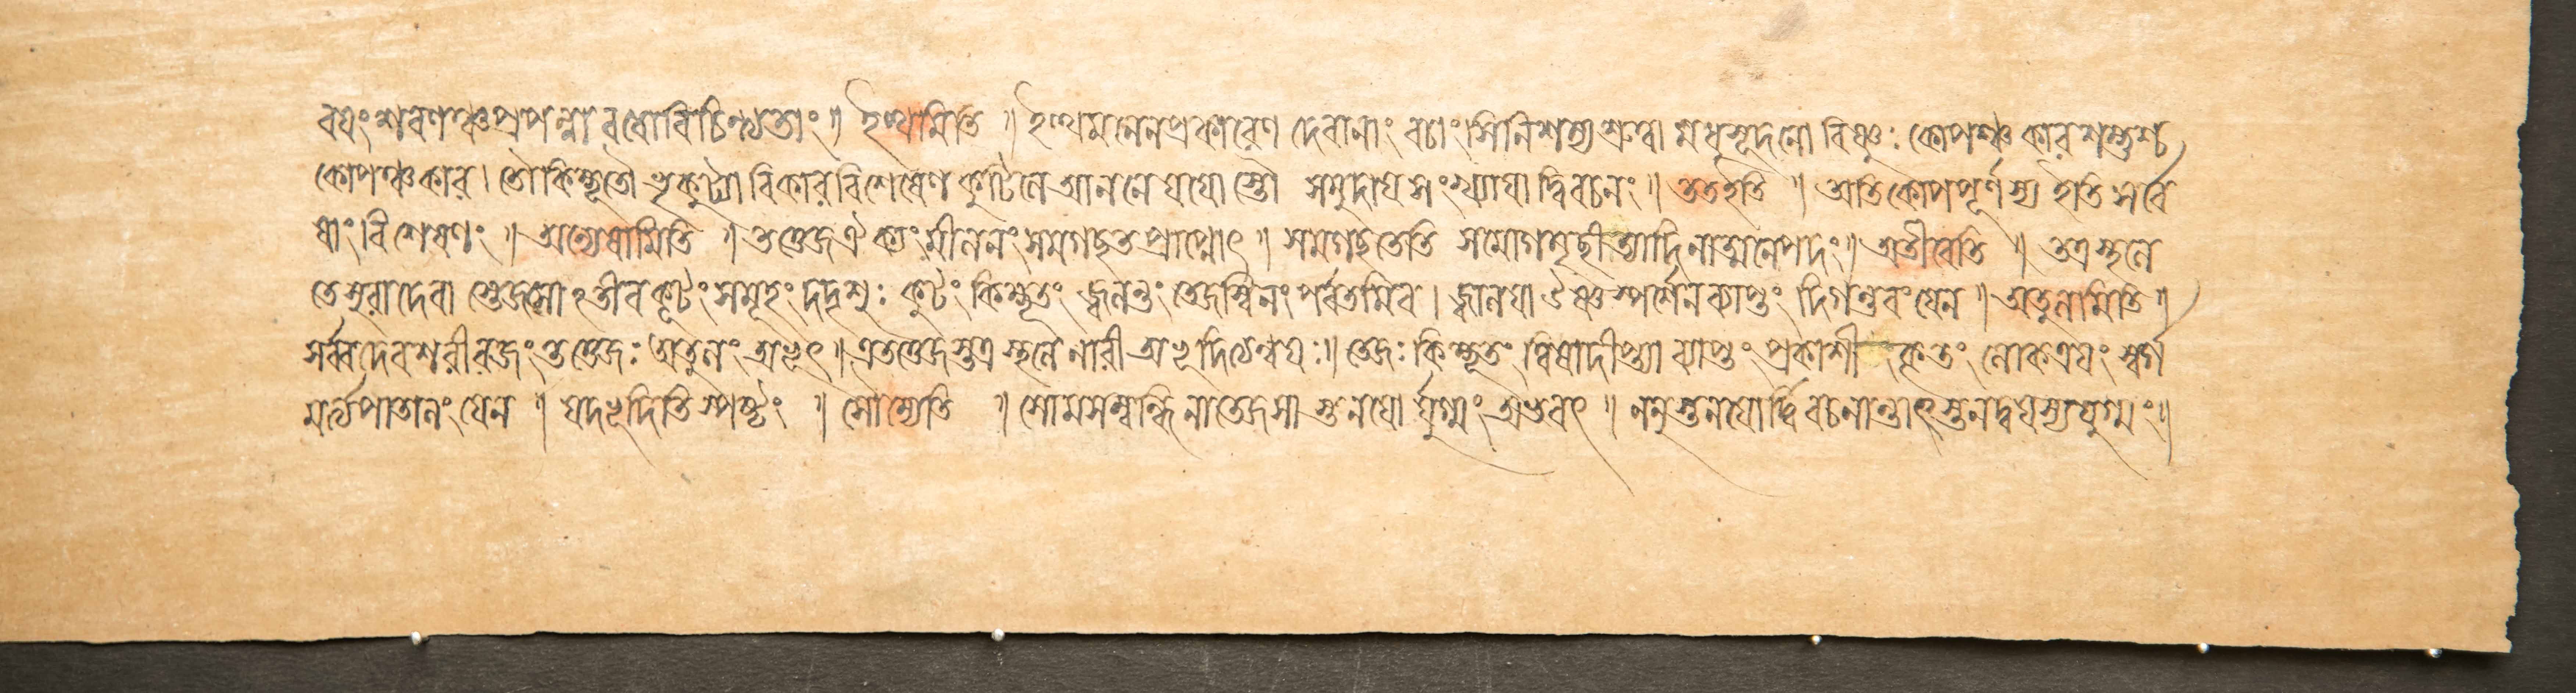 বয়ং শরণঞ্চপ্রপন্না বধোবিচিন্ত্যতাং ॥ ইত্থমিতি ॥ ইত্থমনেনপ্রকারেণ দেবানাং বচাংসিনিশম্য শ্রুত্বা মধুসূদনো বিষ্ণুঃ কোপঞ্চ কার শম্ভুশ্চ
কোপঞ্চকার । তৌকিম্ভূতৌ ভ্রূকুট্যা বিকারবিশেষেণ কুটিলে আননে যযোস্তৌ সমুদায় সংখ্যাযা দ্বিবচনং ॥ ততইতি ॥ অতিকোপপূর্ণস্য ইতি সর্বে
ষাং বিশেষণং ॥ অন্যেষামিতি ॥ তত্তেজ ঐক্যং মীলনং সমগছত প্রাপ্নোৎ ॥ সমগছতেতি সমোগমৃছীত্যাদিনাত্মনেপদং ॥ অতীবেতি ॥ তত্রস্থলে
তেসুরাদেবা স্তেজসোঽতীবকূটং সমূহং দদৃশুঃ কুটং কিম্ভূতং জ্বলন্তং তেজস্বিনং পর্বতমিব । জ্বালযা ঔষ্ণ্যস্পর্শেনব্যাপ্তং দিগন্তরং যেন ॥ অতুলমিতি ॥
সর্ব্বদেবশরীরজং তত্তেজঃ অতুলং অভূৎ ॥ এতত্তেজস্তত্র স্থলে নারী অভূদিত্যেন্বযঃ ॥ তেজঃ কিম্ভূতং ত্বিষাদীপ্ত্যা ব্যাপ্তং প্রকাশীকৃতং লোকত্রযং স্বর্গ
মর্ত্ত্যপাতালং যেন ॥ যদভূদিতি স্পষ্টং ॥ সৌম্যেতি ॥ সোমসম্বন্ধিনাতেজসা স্তনযো র্যুগ্মং অভবৎ ॥ ননুস্তনযোর্দ্বিবচনান্তাৎ স্তনদ্বযস্যযুগ্মং ॥